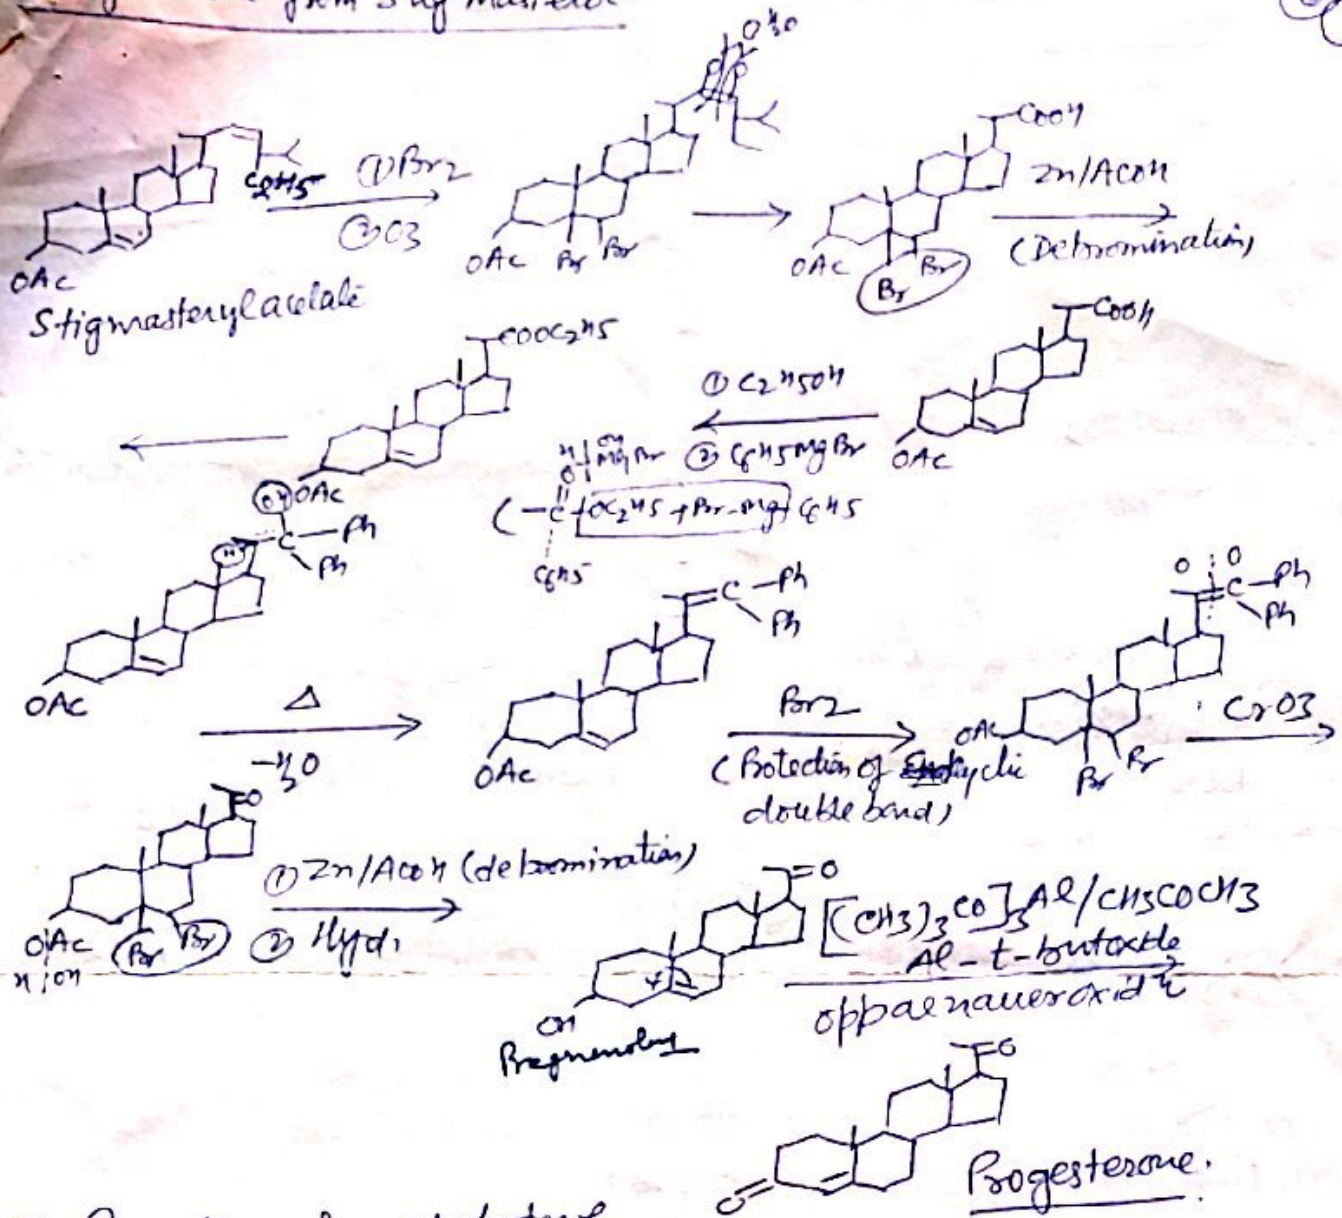 from Stigmasterol
C2H5
① Br2
② O3
OAc
Stigmasterylacetate
O H2O
OAc Br Br
COOH
OAc
Br Br
Zn/AcOH
(Debromination)
COOH
OAc
① C2H5OH
② C6H5MgBr
COOC2H5
OAc
H OH
O MgBr
O
(-C OC2H5 + Br-Mg C6H5
C6H5
OH
H C Ph
Ph
OAc
Δ
-H2O
C Ph
Ph
OAc
Br2
(Protection of cyclic
double bond)
O O
C Ph
Ph
OAc
Br Br
CrO3
O
OAc Br Br
H OH
① Zn/AcOH (debromination)
② Hyd.
O
OH
[(CH3)3CO]3Al/CH3COCH3
Al-t-butoxide
O
O
Progesterone.